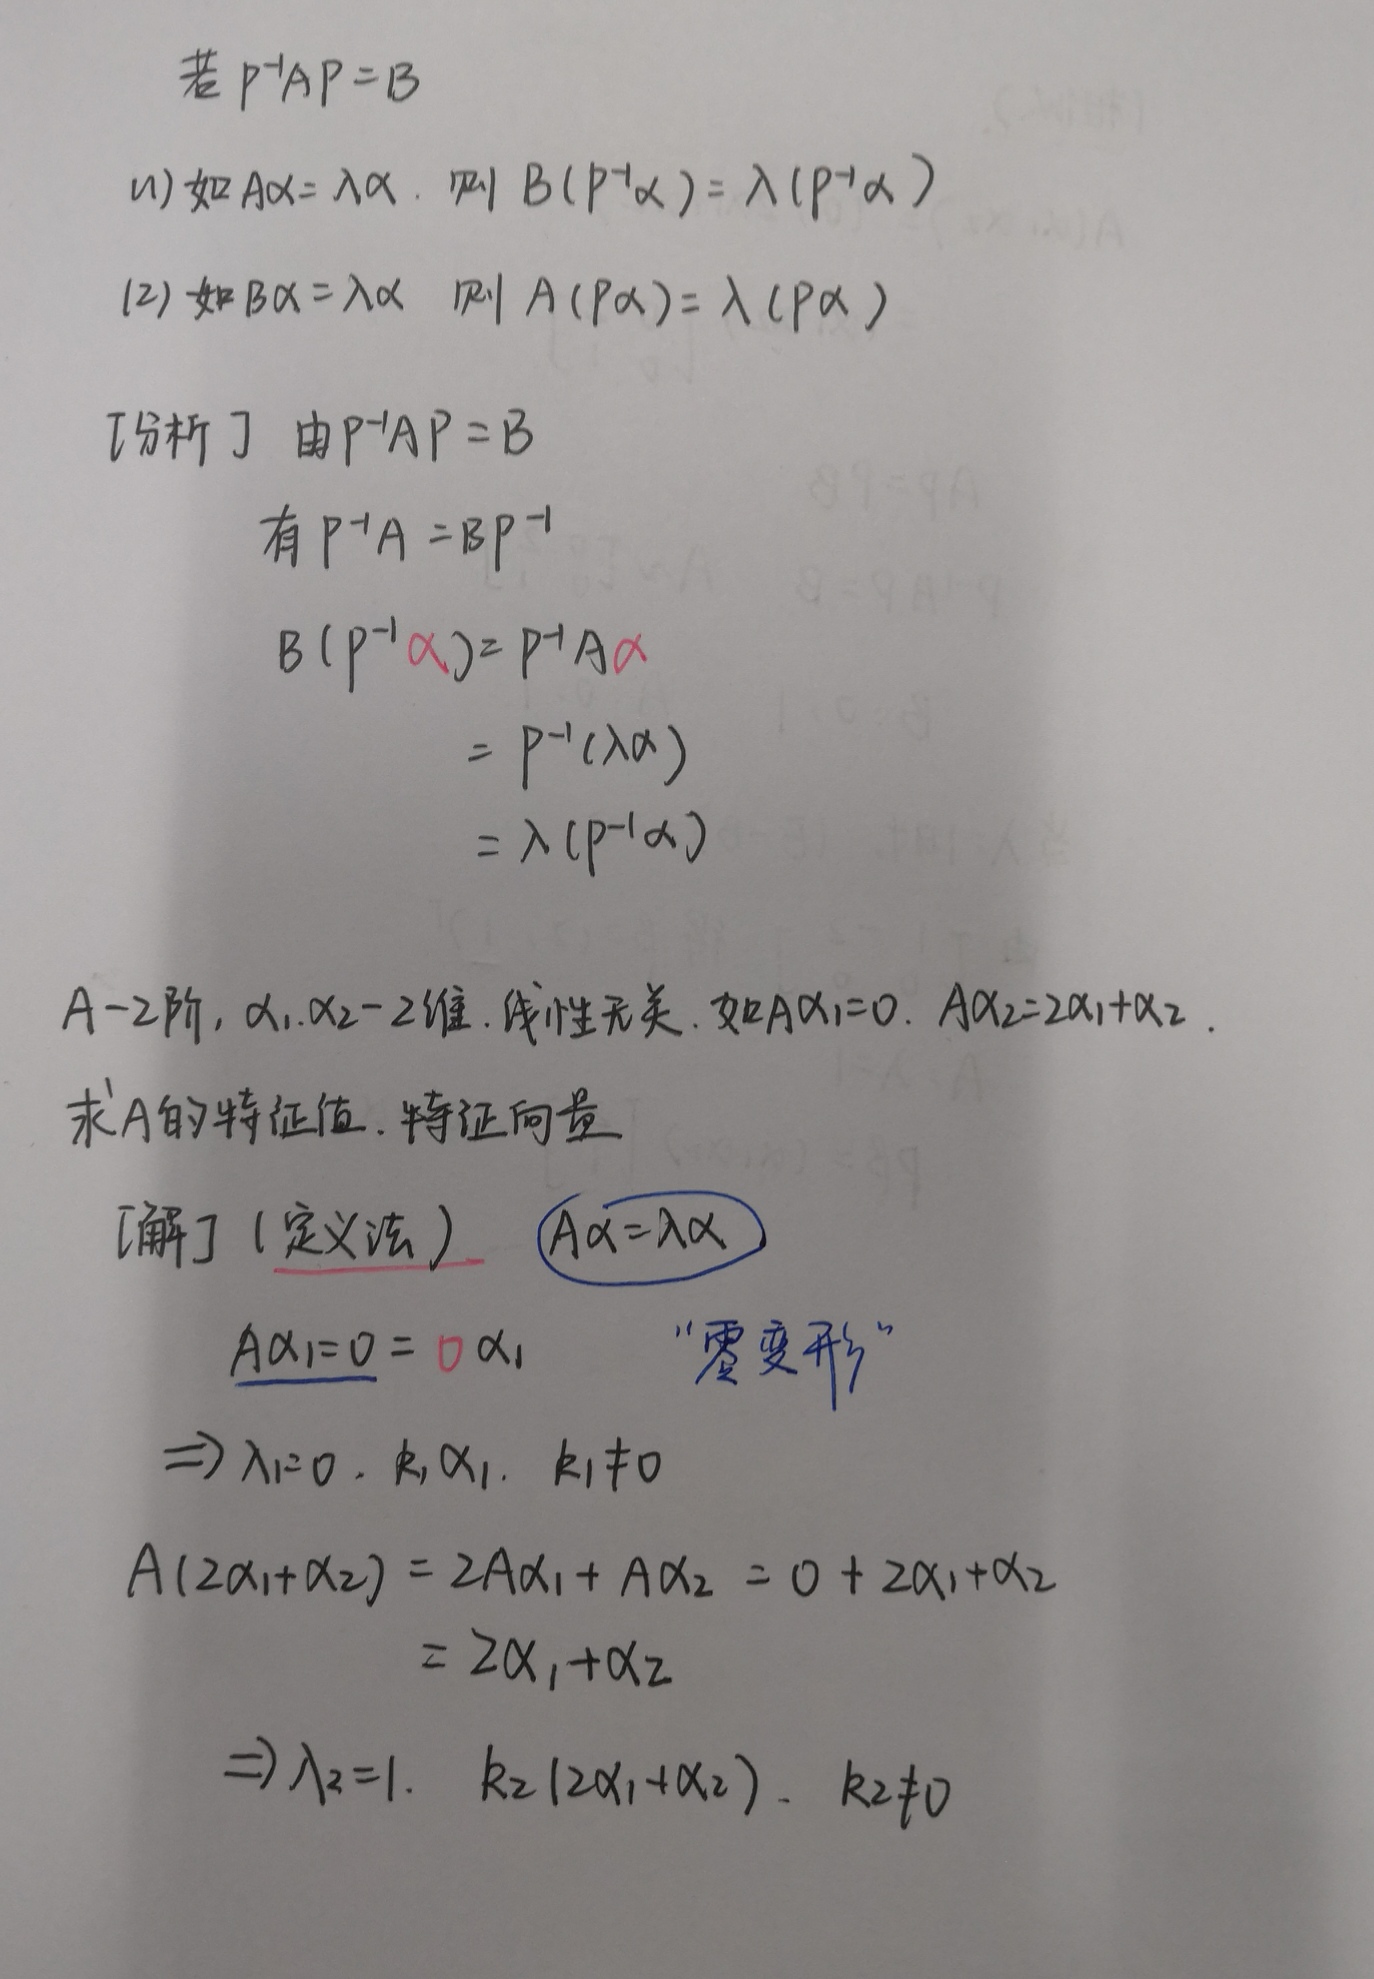 若 P⁻¹AP = B
(1) 如 Aα = λα . 则 B(P⁻¹α) = λ(P⁻¹α)
(2) 如 Bα = λα 则 A(Pα) = λ(Pα)
[分析] 由 P⁻¹AP = B
有 P⁻¹A = BP⁻¹
B(P⁻¹α) = P⁻¹Aα
= P⁻¹(λα)
= λ(P⁻¹α)
A-2阶, α₁.α₂-2维.线性无关. 如Aα₁=0. Aα₂=2α₁+α₂ .
求A的特征值.特征向量
[解] (定义法) Aα=λα
Aα₁=0 = 0α₁ “零变形”
⇒ λ₁=0 . k₁α₁. k₁≠0
A(2α₁+α₂) = 2Aα₁+Aα₂ = 0+2α₁+α₂
= 2α₁+α₂
⇒ λ₂=1. k₂(2α₁+α₂). k₂≠0